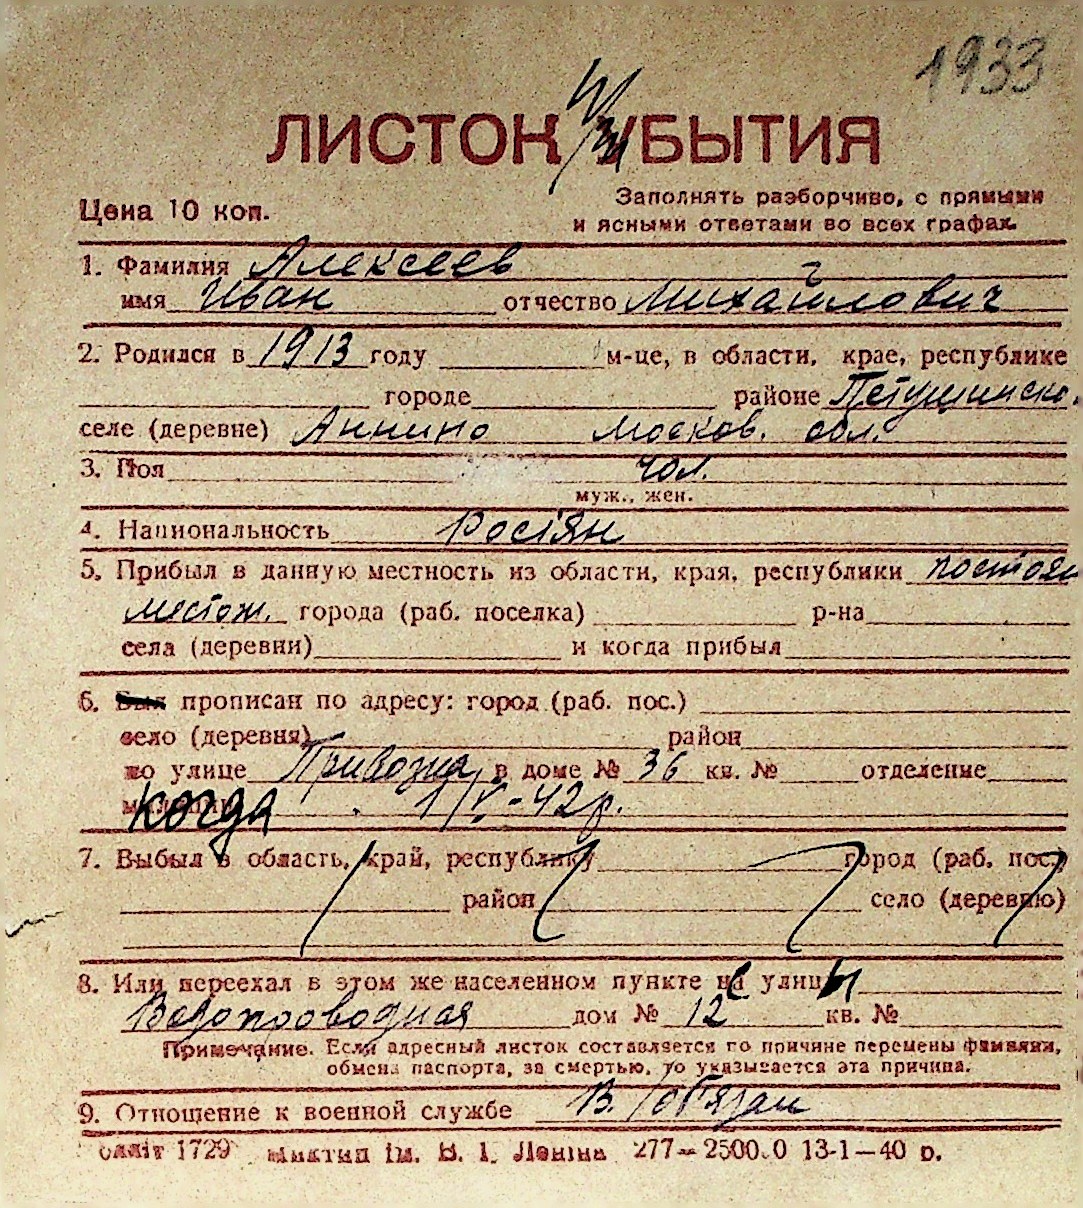 1933
ЛИСТОК УБЫТИЯ
Цена 10 коп.
Заполнять разборчиво, с прямыми
и ясными ответами во всех графах.
1. Фамилия Алексеев
имя Иван отчество Михайлович
2. Родился в 1913 году м-це, в области, крае, республике
городе районе Петушинско.
селе (деревне) Аннино Москов. обл.
3. Пол чол.
муж., жен.
4. Национальность Росіян
5. Прибыл в данную местность из области, края, республики постоян
местож. города (раб. поселка) р-на
села (деревни) и когда прибыл
6. Был прописан по адресу: город (раб. пос.)
село (деревня) район
по улице в доме № 36 кв. № отделение
когда 1/V-42р.
7. Выбыл в область, край, республику город (раб. пос.)
район село (деревню)
8. Или переехал в этом же населенном пункте с улицы
дом № 12 кв. №
Примечание. Если адресный листок составляется по причине перемены фамилии,
обмена паспорта, за смертью, то указывается эта причина.
9. Отношение к военной службе В./обязан
1729 ім. В. І. Леніна 277—2500.0 13-1—40 р.